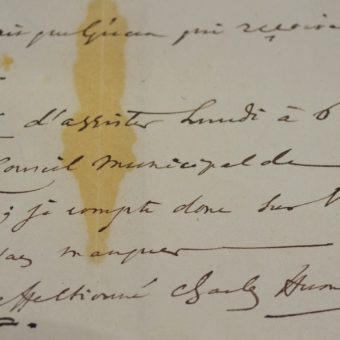 quelqu'un qui
d'assister Lundi à 6
Conseil Municipal de
; je compte donc sur
manquer
affectionné Charles